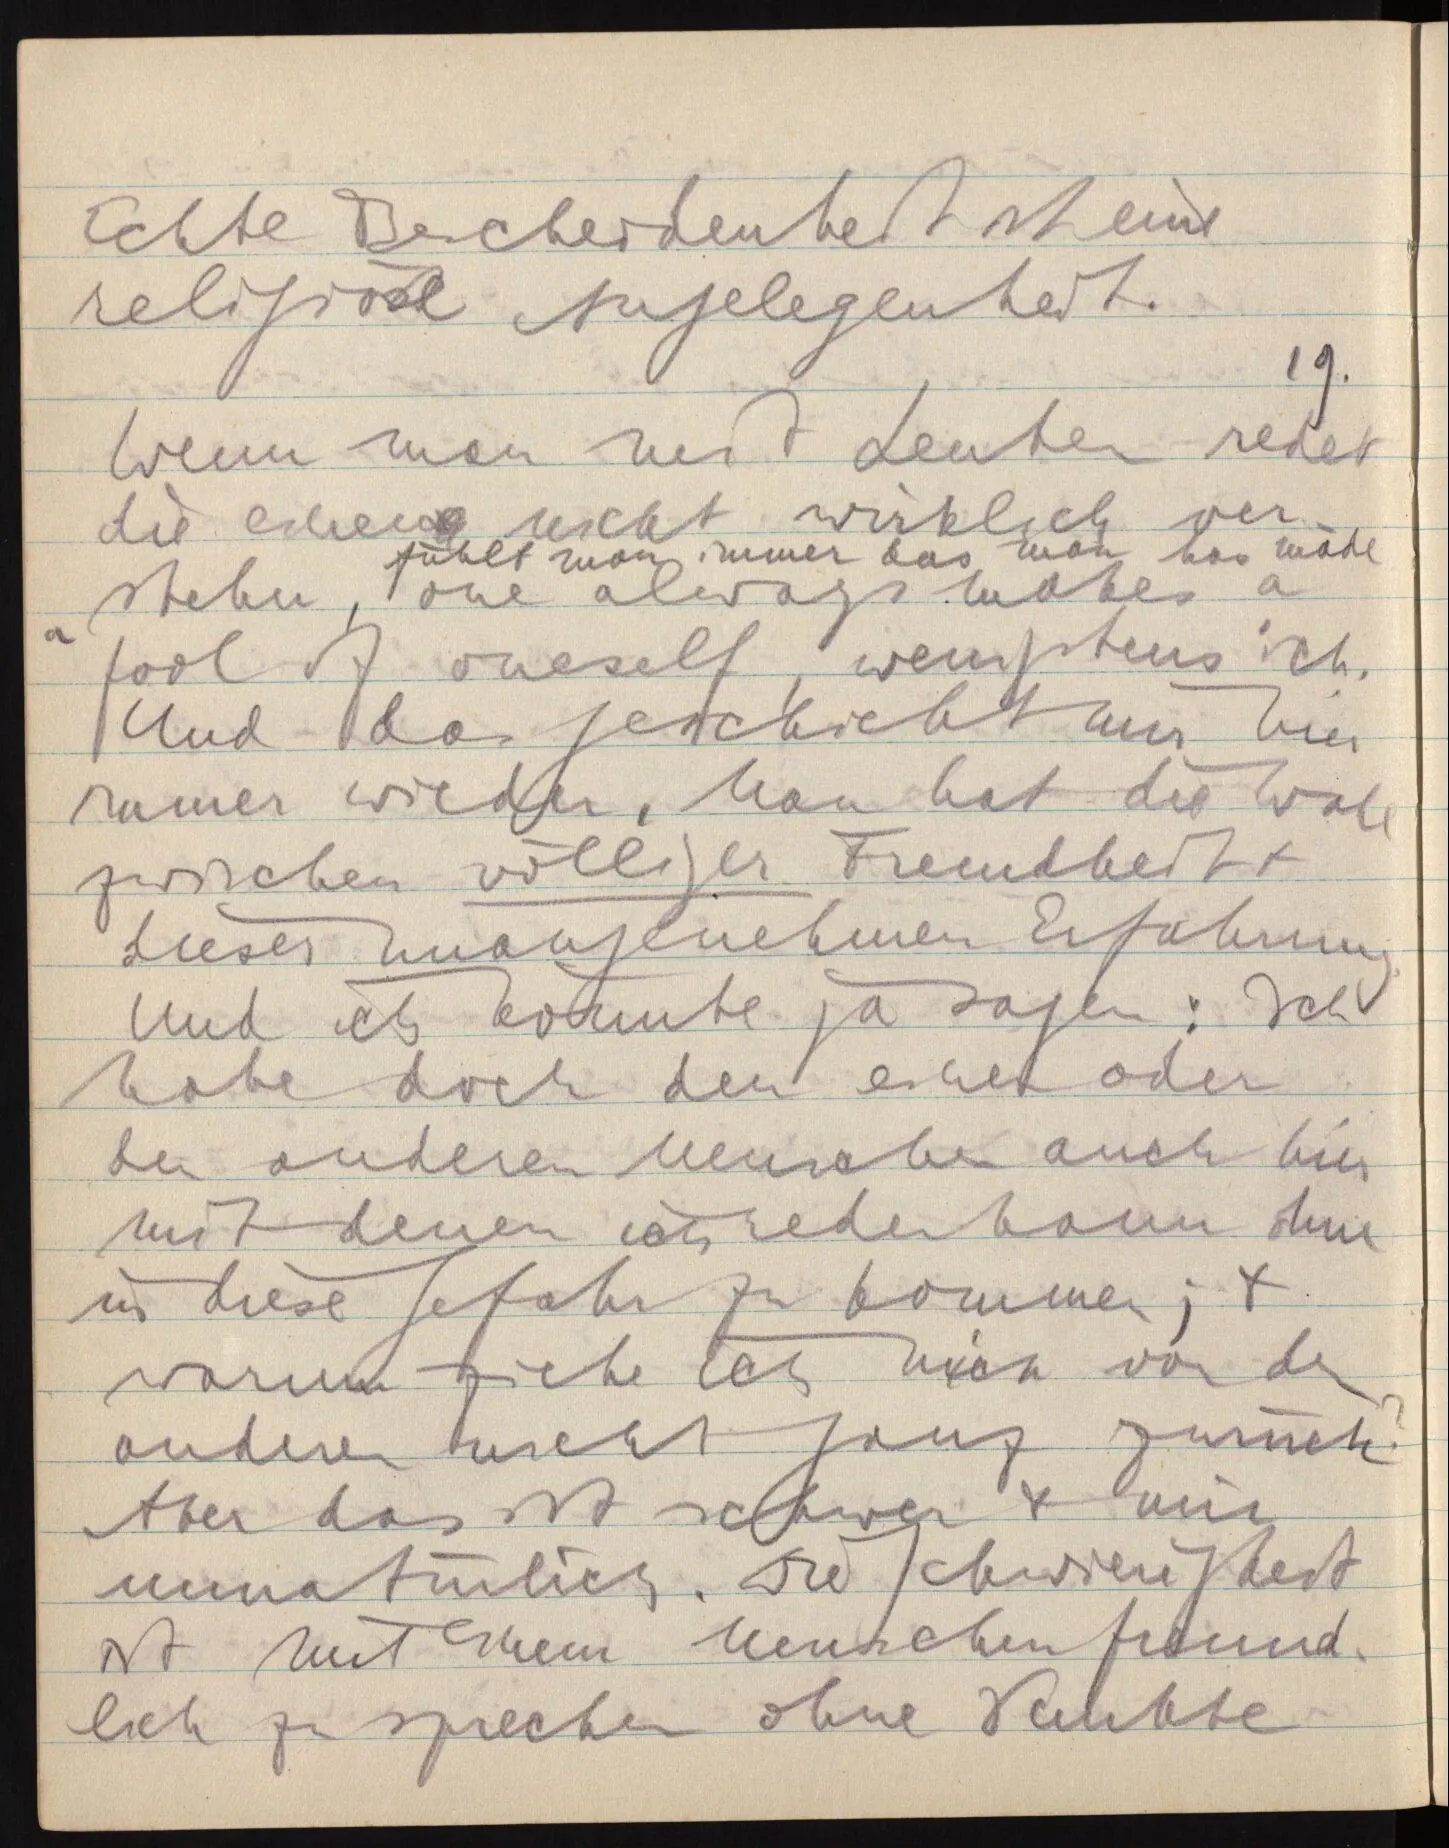 Echte Bescheidenheit ist eine
religiöse Angelegenheit.
19.
Wenn man mit Leuten redet
die einen nicht wirklich ver-
fühlt man immer das man has made
stehen, one always makes a
a
fool of oneself, wenigstens ich.
Und das geschieht mir hier
immer wieder. Man hat die Wahl
zwischen völliger Fremdheit +
dieser unangenehmen Erfahrung.
Und ich könnte ja sagen: Ich
habe doch den einen oder
den anderen Menschen auch hier
mit denen ich reden kann ohne
in diese Gefahr zu kommen; +
warum ziehe ich mich von den
anderen nicht ganz zurück?
Aber das ist schwer + mir
unnatürlich. Die Schwierigkeit
ist mit einem Menschen freund-
lich zu sprechen ohne Punkte